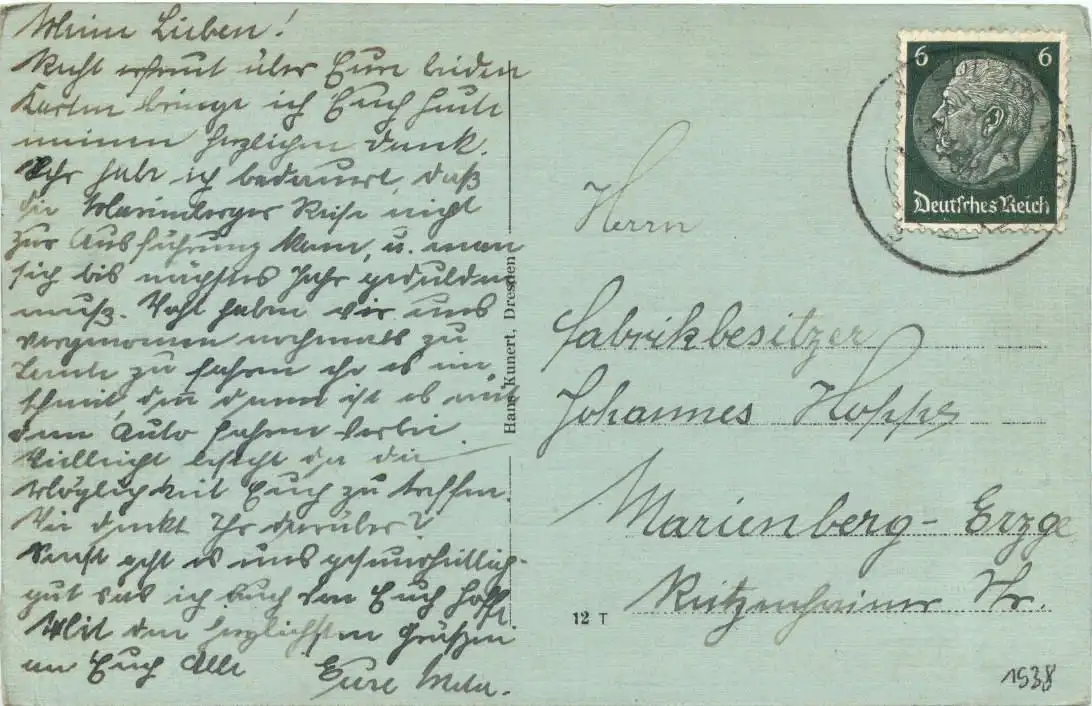 Meine Lieben!
Recht erfreut über Eure beiden
Karten bringe ich Euch heute
meinen herzlichen Dank.
Sehr habe ich bedauert, daß
die Marienberger Reise nicht
zur Ausführung kam, u. man
sich bis nächstes Jahr gedulden
muß. Wohl haben wir uns
vorgenommen nochmals zu
Leute zu fahren ehe es ein
schneit, den dann ist es mit
dem Auto fahren vorbei.
Vielleicht besteht da die
Möglichkeit Euch zu treffen.
Wie denkt Ihr darüber?
Sonst geht es uns gesundheitlich
gut was ich auch von Euch hoffe
Mit den herzlichsten Grüßen
an Euch Alle Eure Meta.
Hans Kunert, Dresden
12 T
6 6
Deutsches Reich
Herrn
Fabrikbesitzer
Johannes Hoppe
Marienberg - Erzge
Str.
1938